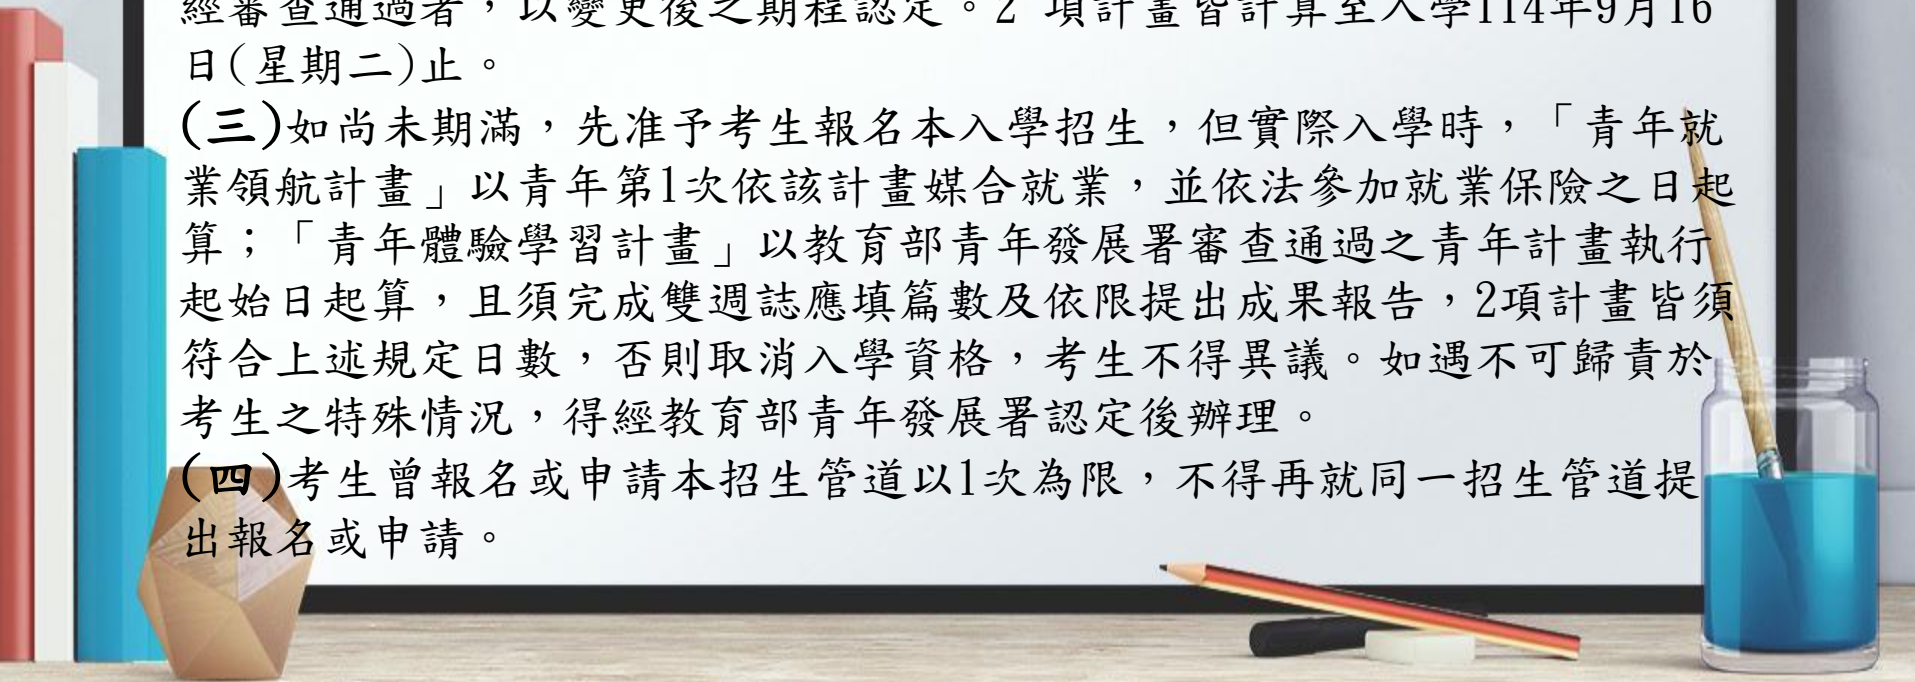 經審查通過者，以變更後之期程認定。2 項計畫皆計算至入學114年9月16
日(星期二)止。
(三)如尚未期滿，先准予考生報名本入學招生，但實際入學時，「青年就
業領航計畫」以青年第1次依該計畫媒合就業，並依法參加就業保險之日起
算；「青年體驗學習計畫」以教育部青年發展署審查通過之青年計畫執行
起始日起算，且須完成雙週誌應填篇數及依限提出成果報告，2項計畫皆須
符合上述規定日數，否則取消入學資格，考生不得異議。如遇不可歸責於
考生之特殊情況，得經教育部青年發展署認定後辦理。
(四)考生曾報名或申請本招生管道以1次為限，不得再就同一招生管道提
出報名或申請。